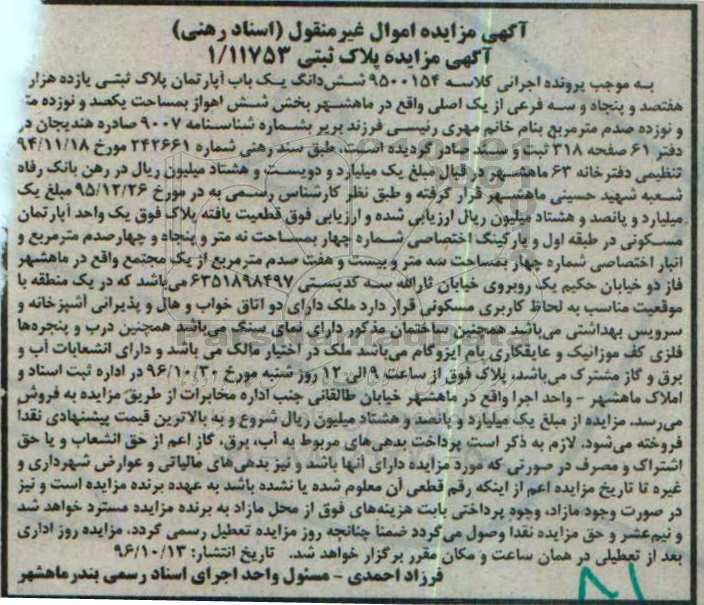 آگهی مزایده اموال غیرمنقول (اسناد رهنی)
آگهی مزایده پلاک ثبتی ۱/۱۱۷۵۳
به موجب پرونده اجرائی کلاسه ۹۵۰۰۱۵۴ شش‌دانگ یک باب آپارتمان پلاک ثبتی یازده هزار
هفتصد و پنجاه و سه فرعی از یک اصلی واقع در ماهشهر بخش شش اهواز بمساحت یکصد و نوزده مت
و نوزده صدم مترمربع بنام خانم مهری رئیسی فرزند بریر بشماره شناسنامه ۹۰۰۷ صادره هندیجان در
دفتر ۶۱ صفحه ۳۱۸ ثبت و سند صادر گردیده است، طبق سند رهنی شماره ۲۴۲۶۶۱ مورخ ۹۴/۱۱/۱۸
تنظیمی دفترخانه ۶۳ ماهشهر در قبال مبلغ یک میلیارد و دویست و هشتاد میلیون ریال در رهن بانک رفاه
شعبه شهید حسینی ماهشهر قرار گرفته و طبق نظر کارشناس رسمی به در مورخ ۹۵/۱۲/۲۶ مبلغ یک
میلیارد و پانصد و هشتاد میلیون ریال ارزیابی شده و ارزیابی فوق قطعیت یافته پلاک فوق یک واحد آپارتمان
مسکونی در طبقه اول و پارکینگ اختصاصی شماره چهار بمساحت نه متر و پنجاه و چهارصدم مترمربع و
انبار اختصاصی شماره چهار بمساحت سه متر و بیست و هفت صدم مترمربع از یک مجتمع واقع در ماهشهر
فاز دو خیابان حکیم یک روبروی خیابان ثارالله سه کدپستی ۶۳۵۱۸۹۸۴۹۷ می‌باشد که در یک منطقه با
موقعیت مناسب به لحاظ کاربری مسکونی قرار دارد ملک دارای دو اتاق خواب و هال و پذیرائی آشپزخانه و
سرویس بهداشتی می‌باشد همچنین ساختمان مذکور دارای نمای سنگ می‌باشد همچنین درب و پنجره‌ها
فلزی کف موزائیک و عایقکاری بام ایزوگام می‌باشد ملک در اختیار مالک می باشد و دارای انشعابات آب و
برق و گاز مشترک می‌باشد، پلاک فوق از ساعت ۹ الی ۱۲ روز شنبه مورخ ۹۶/۱۰/۳۰ در اداره ثبت اسناد و
املاک ماهشهر - واحد اجرا واقع در ماهشهر خیابان طالقانی جنب اداره مخابرات از طریق مزایده به فروش
می‌رسد، مزایده از مبلغ یک میلیارد و پانصد و هشتاد میلیون ریال شروع و به بالاترین قیمت پیشنهادی نقدا
فروخته می‌شود. لازم به ذکر است پرداخت بدهی‌های مربوط به آب، برق، گاز اعم از حق انشعاب و یا حق
اشتراک و مصرف در صورتی که مورد مزایده دارای آنها باشد و نیز بدهی‌های مالیاتی و عوارض شهرداری و
غیره تا تاریخ مزایده اعم از اینکه رقم قطعی آن معلوم شده یا نشده باشد به عهده برنده مزایده است و نیز
در صورت وجود مازاد، وجوه پرداختی بابت هزینه‌های فوق از محل مازاد به برنده مزایده مسترد خواهد شد
و نیم‌عشر و حق مزایده نقدا وصول می‌گردد ضمنا چنانچه روز مزایده تعطیل رسمی گردد، مزایده روز اداری
بعد از تعطیلی در همان ساعت و مکان مقرر برگزار خواهد شد. تاریخ انتشار: ۹۶/۱۰/۱۳
فرزاد احمدی - مسئول واحد اجرای اسناد رسمی بندرماهشهر